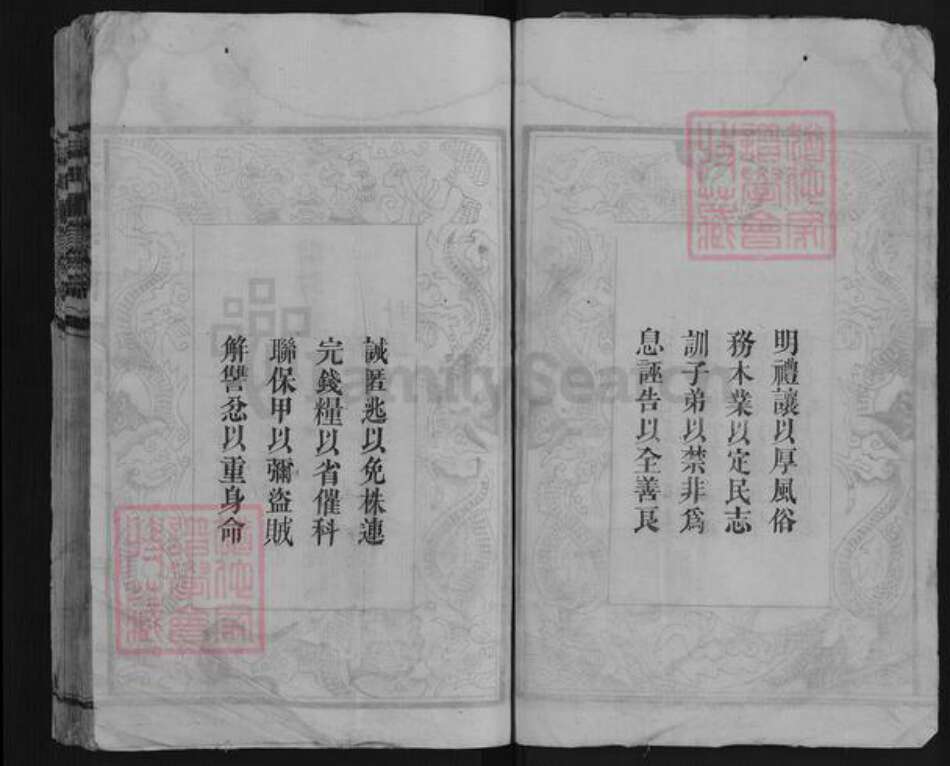 明禮讓以厚風俗
務木業以定民志
訓子弟以禁非爲
息誣告以全善良
誡匿逃以免株連
完錢糧以省催科
聯保甲以彌盜賊
解讐忿以重身命
FamilySearch